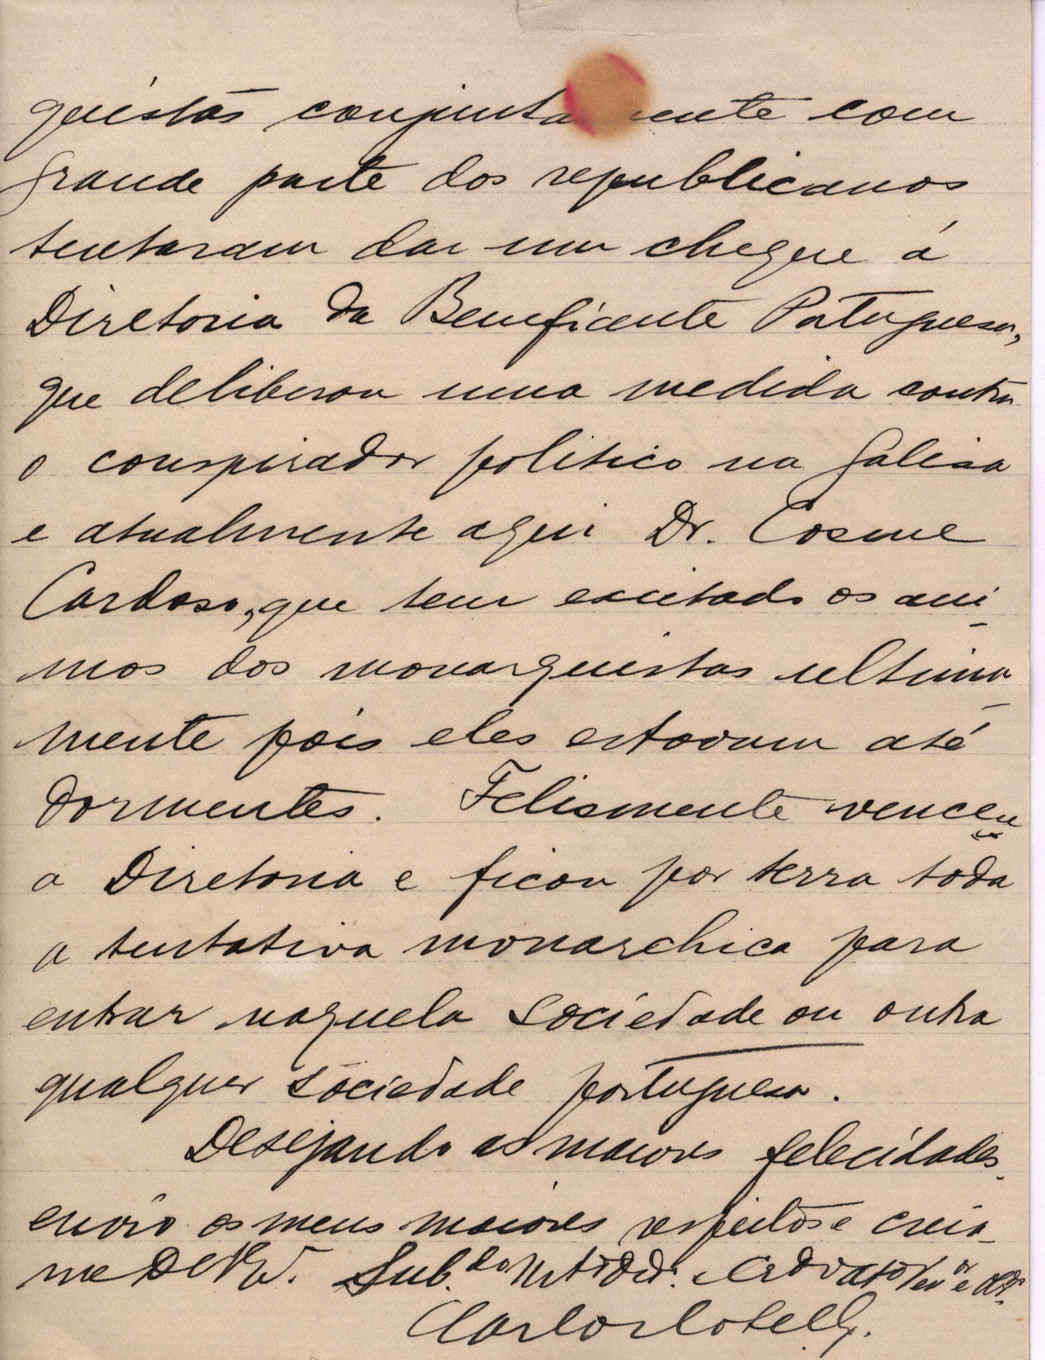 quistas conjuntamente com
grande parte dos republicanos
tentaram dar um cheque á
Diretoria da Beneficente Portuguesa,
que deliberou uma medida contra
o conspirador politico na Galisa
e atualmente aqui Dr. Cosme
Cardoso, que tem excitado os ani
mos dos monarquistas ultima
mente pois eles estavam até
dormentes. Felismente venceu
a Diretoria e ficou por terra toda
a tentativa monarchica para
entrar naquela sociedade ou outra
qualquer sociedade portuguesa.
Desejando as maiores felecidades
envio os meus maiores respeitos e creia
me De V.
Carlos